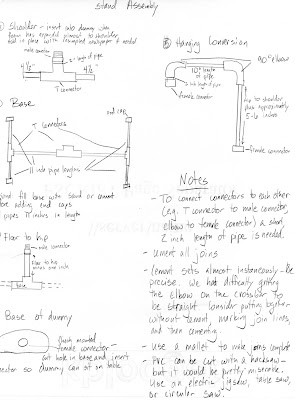 Stand Assembly
Shoulder - insert into dummy when
foam has expanded almost to shoulder,
hold in place with crumpled newspaper if needed
male connector
2" length of pipe
4½"
4½"
T connector
Base
end cap
T connectors
11 inch pipe lengths
fill base with sand or cement
before adding end caps
pipes 11 inches in length
Floor to hip
male connector
Floor to hip
minus one inch
Base of dummy
flush mounted
female connector -
cut hole in base and insert
connector so dummy can sit on table
Hanging Conversion
90° elbow
10" length
of pipe
2 inch length of pipe
female connector
hip to shoulder
plus approximately
5-6 inches
female connector
Notes
- To connect connectors to each other
(eg. T connector to male connector,
elbow to female connector) a short
2 inch length of pipe is needed.
- Cement all joins
- Cement sets almost instantaneously - Be
precise. We had difficulty getting
the elbow on the crossbar to
be straight. Consider putting together
without cement, marking join lines,
and then cementing.
- Use a mallet to make joins complete
- PVC can be cut with a hacksaw -
but it would be pretty miserable.
Use an electric jigsaw, table saw,
or circular saw.